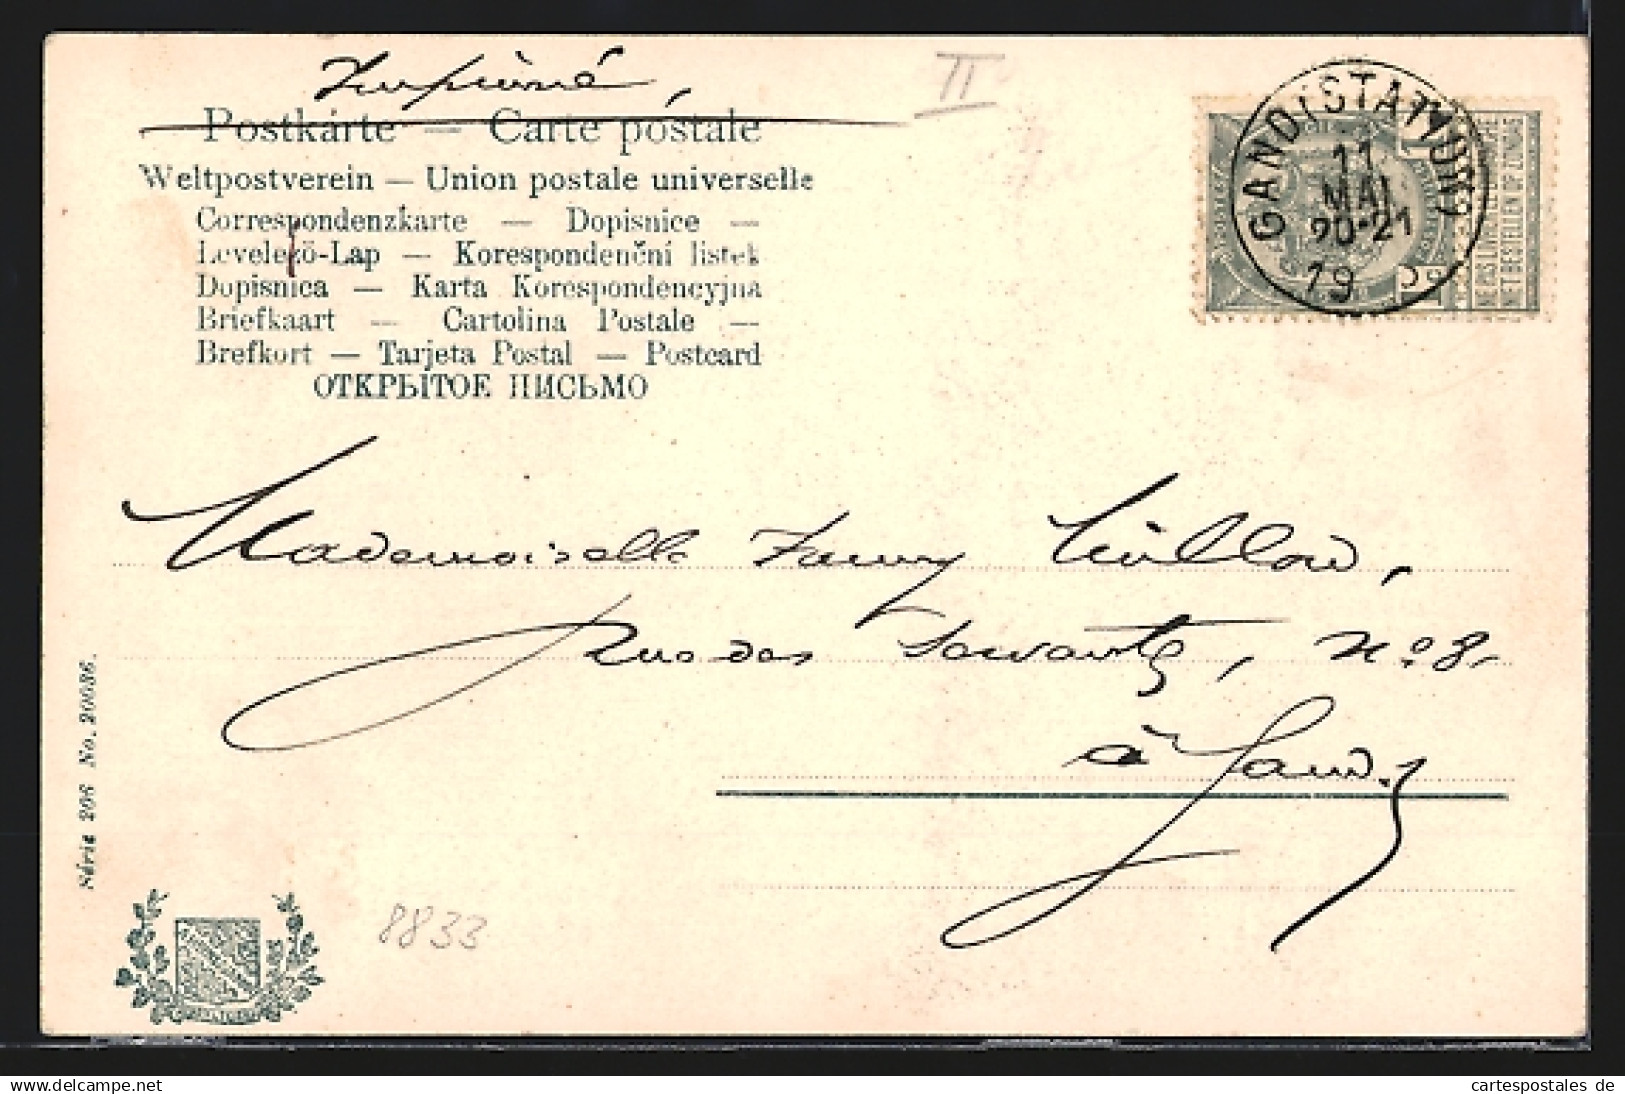 Imprimé,
II
Postkarte — Carte postale
Weltpostverein — Union postale universelle
Correspondenzkarte — Dopisnice —
Levelező-Lap — Korespondenční listek
Dopisnica — Karta Korespondencyjna
Briefkaart — Cartolina Postale —
Brefkort — Tarjeta Postal — Postcard
ОТКРЫТОЕ ПИСЬМО
GAND (STATION)
11
MAI
20-21
19 09
NE PAS LIVRER LE DIMANCHE
NIET BESTELLEN OP ZONDAG
Mademoiselle Fanny
Rue des No 8.
à Gand.
Série 206 No. 20036.
8833
Image details
cartespostales de